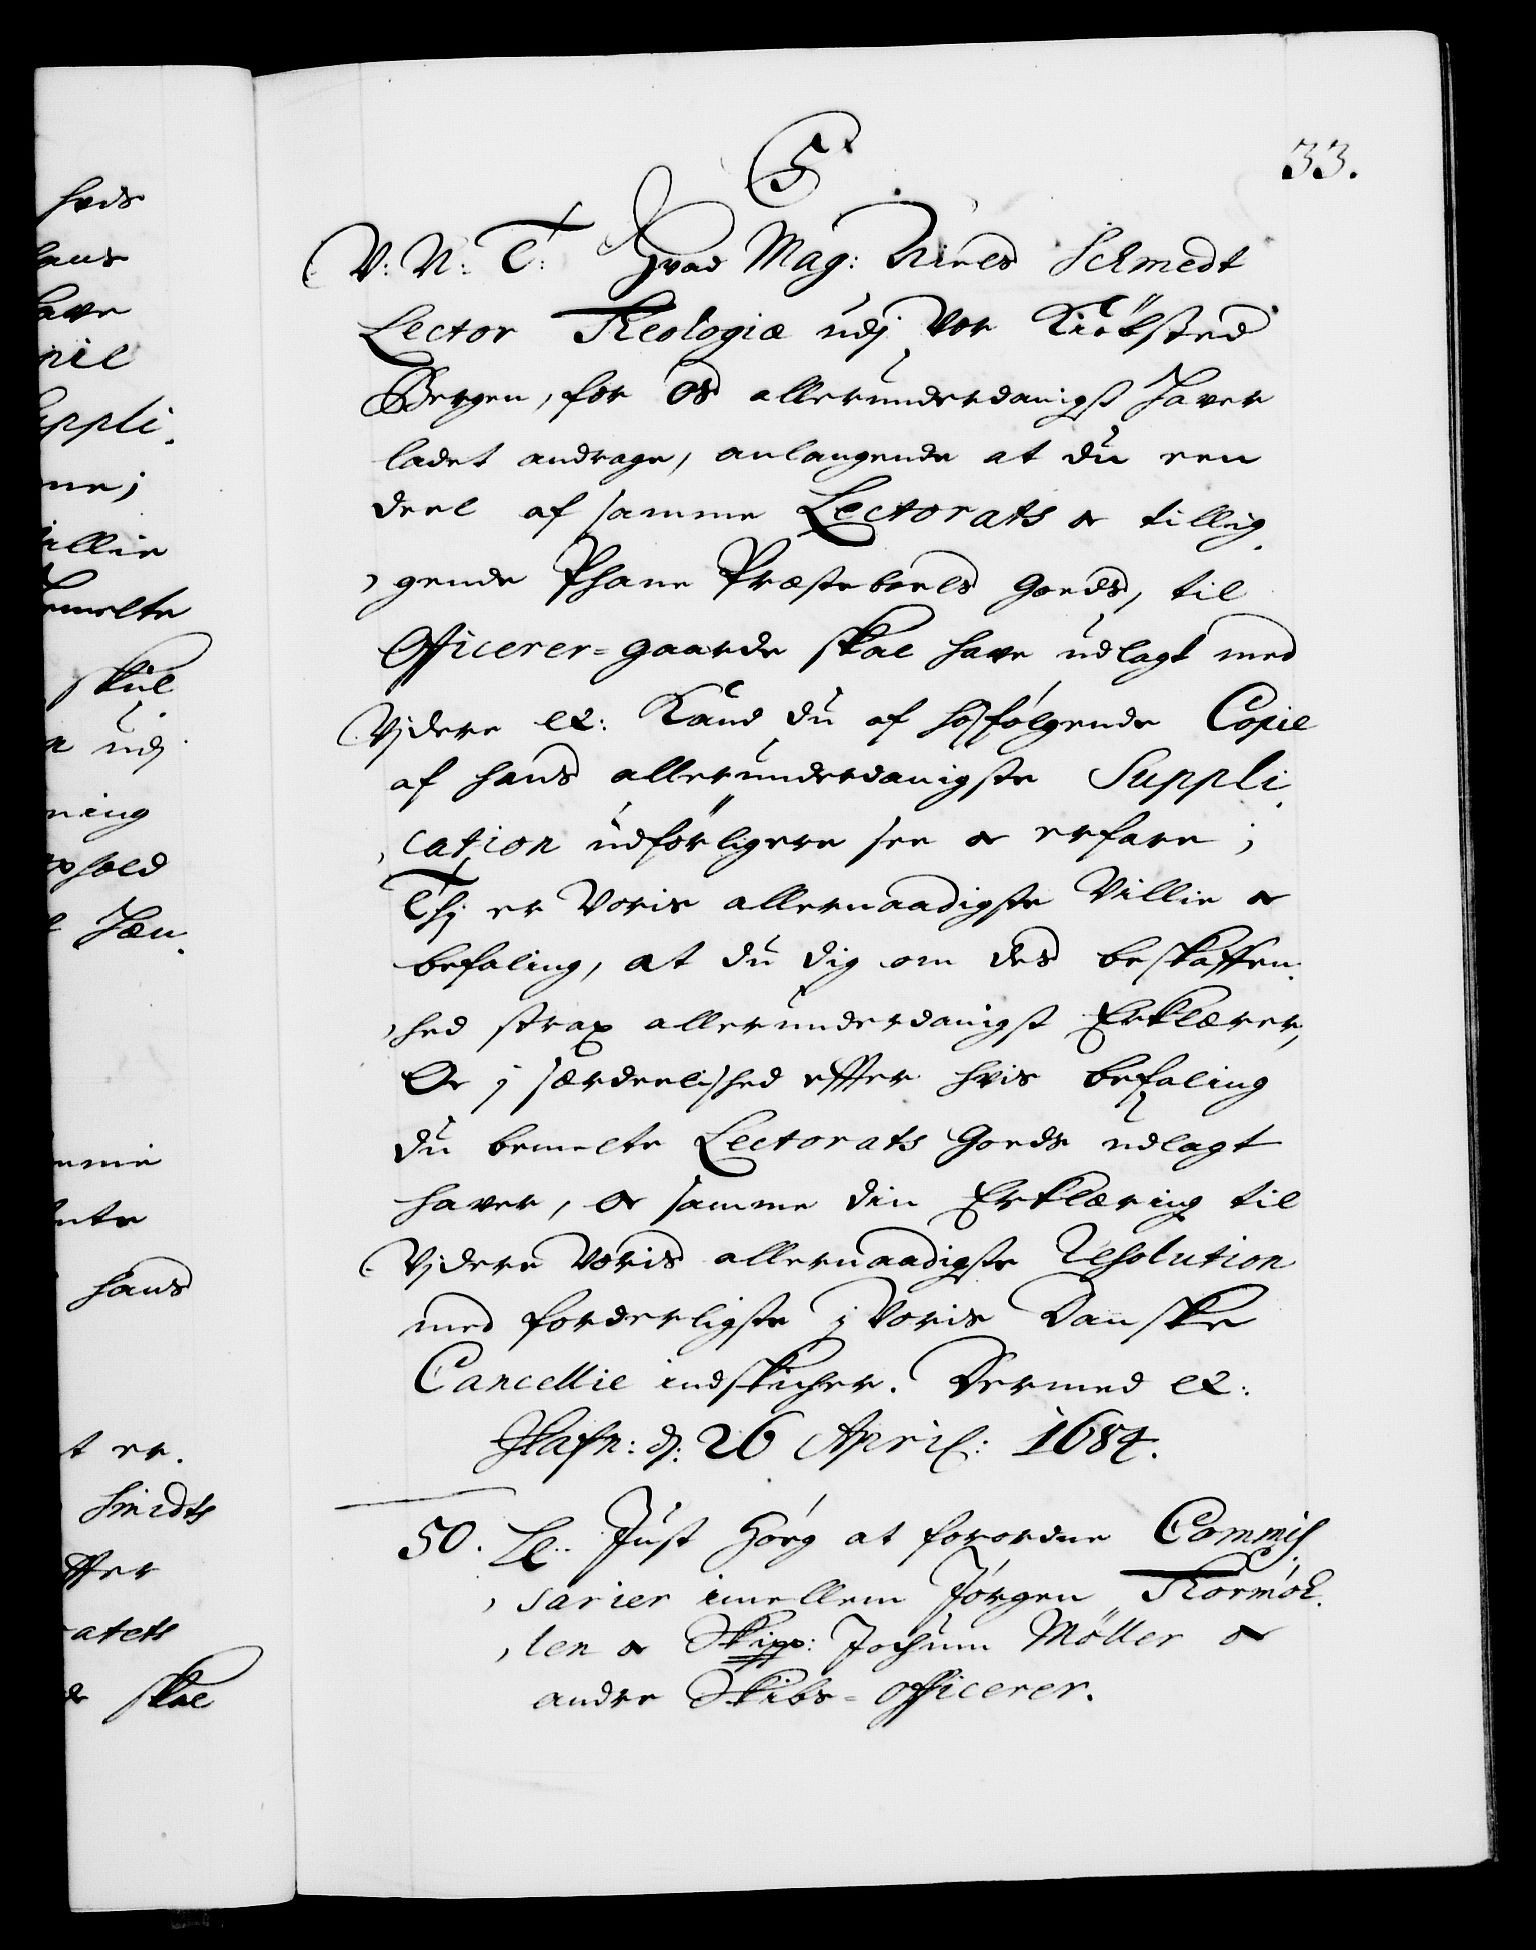 33.
C5
V: N: T: Hvad Mag: Niels Schmedt
Lector Theologiæ udj vor Kiøbsted
Bergen, for Os allerunderdanigst haver
ladet andrage, anlangende at du een
deel af samme Lectorats og tillig
gende Phane Præsteboels Goeds, til
Officerer=gaarde skal have udlagt med
Vjdere etc: Kand du af hosfølgende Copie
af hans allerunderdanigste Suppli
cation udførligere see og erfare;
Thj er Voris allernaadigste Villie og
befaling, at du dig om des beskaffen
hed strax allerunderdanigst Erklærer,
Og j særdeelished effter hvis befaling
du bemelte Lectorats Goeds udlagt
haver, og samme din Erklæring til
Vjdere Voris allernaadigste Resolution
med forderligste j Voris Danske
Cancellie indskicher. Dermed etc:
Hafn: d: 26 April: 1684.
50. Le: Just Høeg at forordne Commis
sarier imellem Jørgen Thormøh
len og Skipp: Jochum Møller og
andre Skibs=officerer.
hvis
hans
have
Suppli
ne;
villie
bemelte
skul
udj
ning
ophold
hans
t er.
Smidts
effter
skal